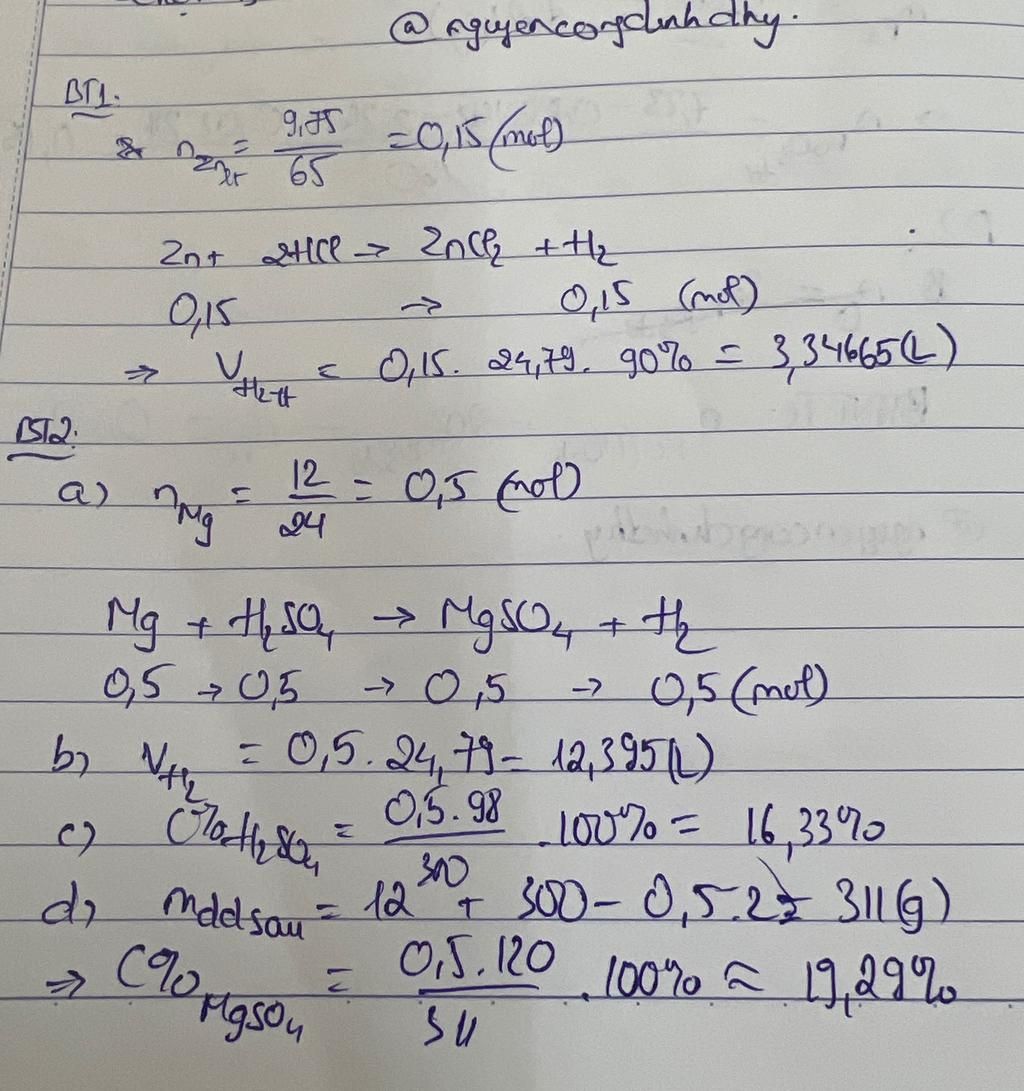 @nguyencongchinhdhy.
BT1.
n Zn pư = 9,75/65 = 0,15 (mol)
Zn + 2HCl → ZnCl2 + H2
0,15 → 0,15 (mol)
⇒ V H2 tt = 0,15. 24,79. 90% = 3,34665(L)
BT2.
a) n Mg = 12/24 = 0,5 (mol)
Mg + H2SO4 → MgSO4 + H2
0,5 → 0,5 → 0,5 → 0,5 (mol)
b) V H2 = 0,5. 24,79 = 12,395(L)
c) C% H2SO4 = 0,5.98/300 .100% = 16,33%
d) mdd sau = 12 + 300 - 0,5.2 = 311(g)
⇒ C% MgSO4 = 0,5.120/311 .100% ≈ 19,29%